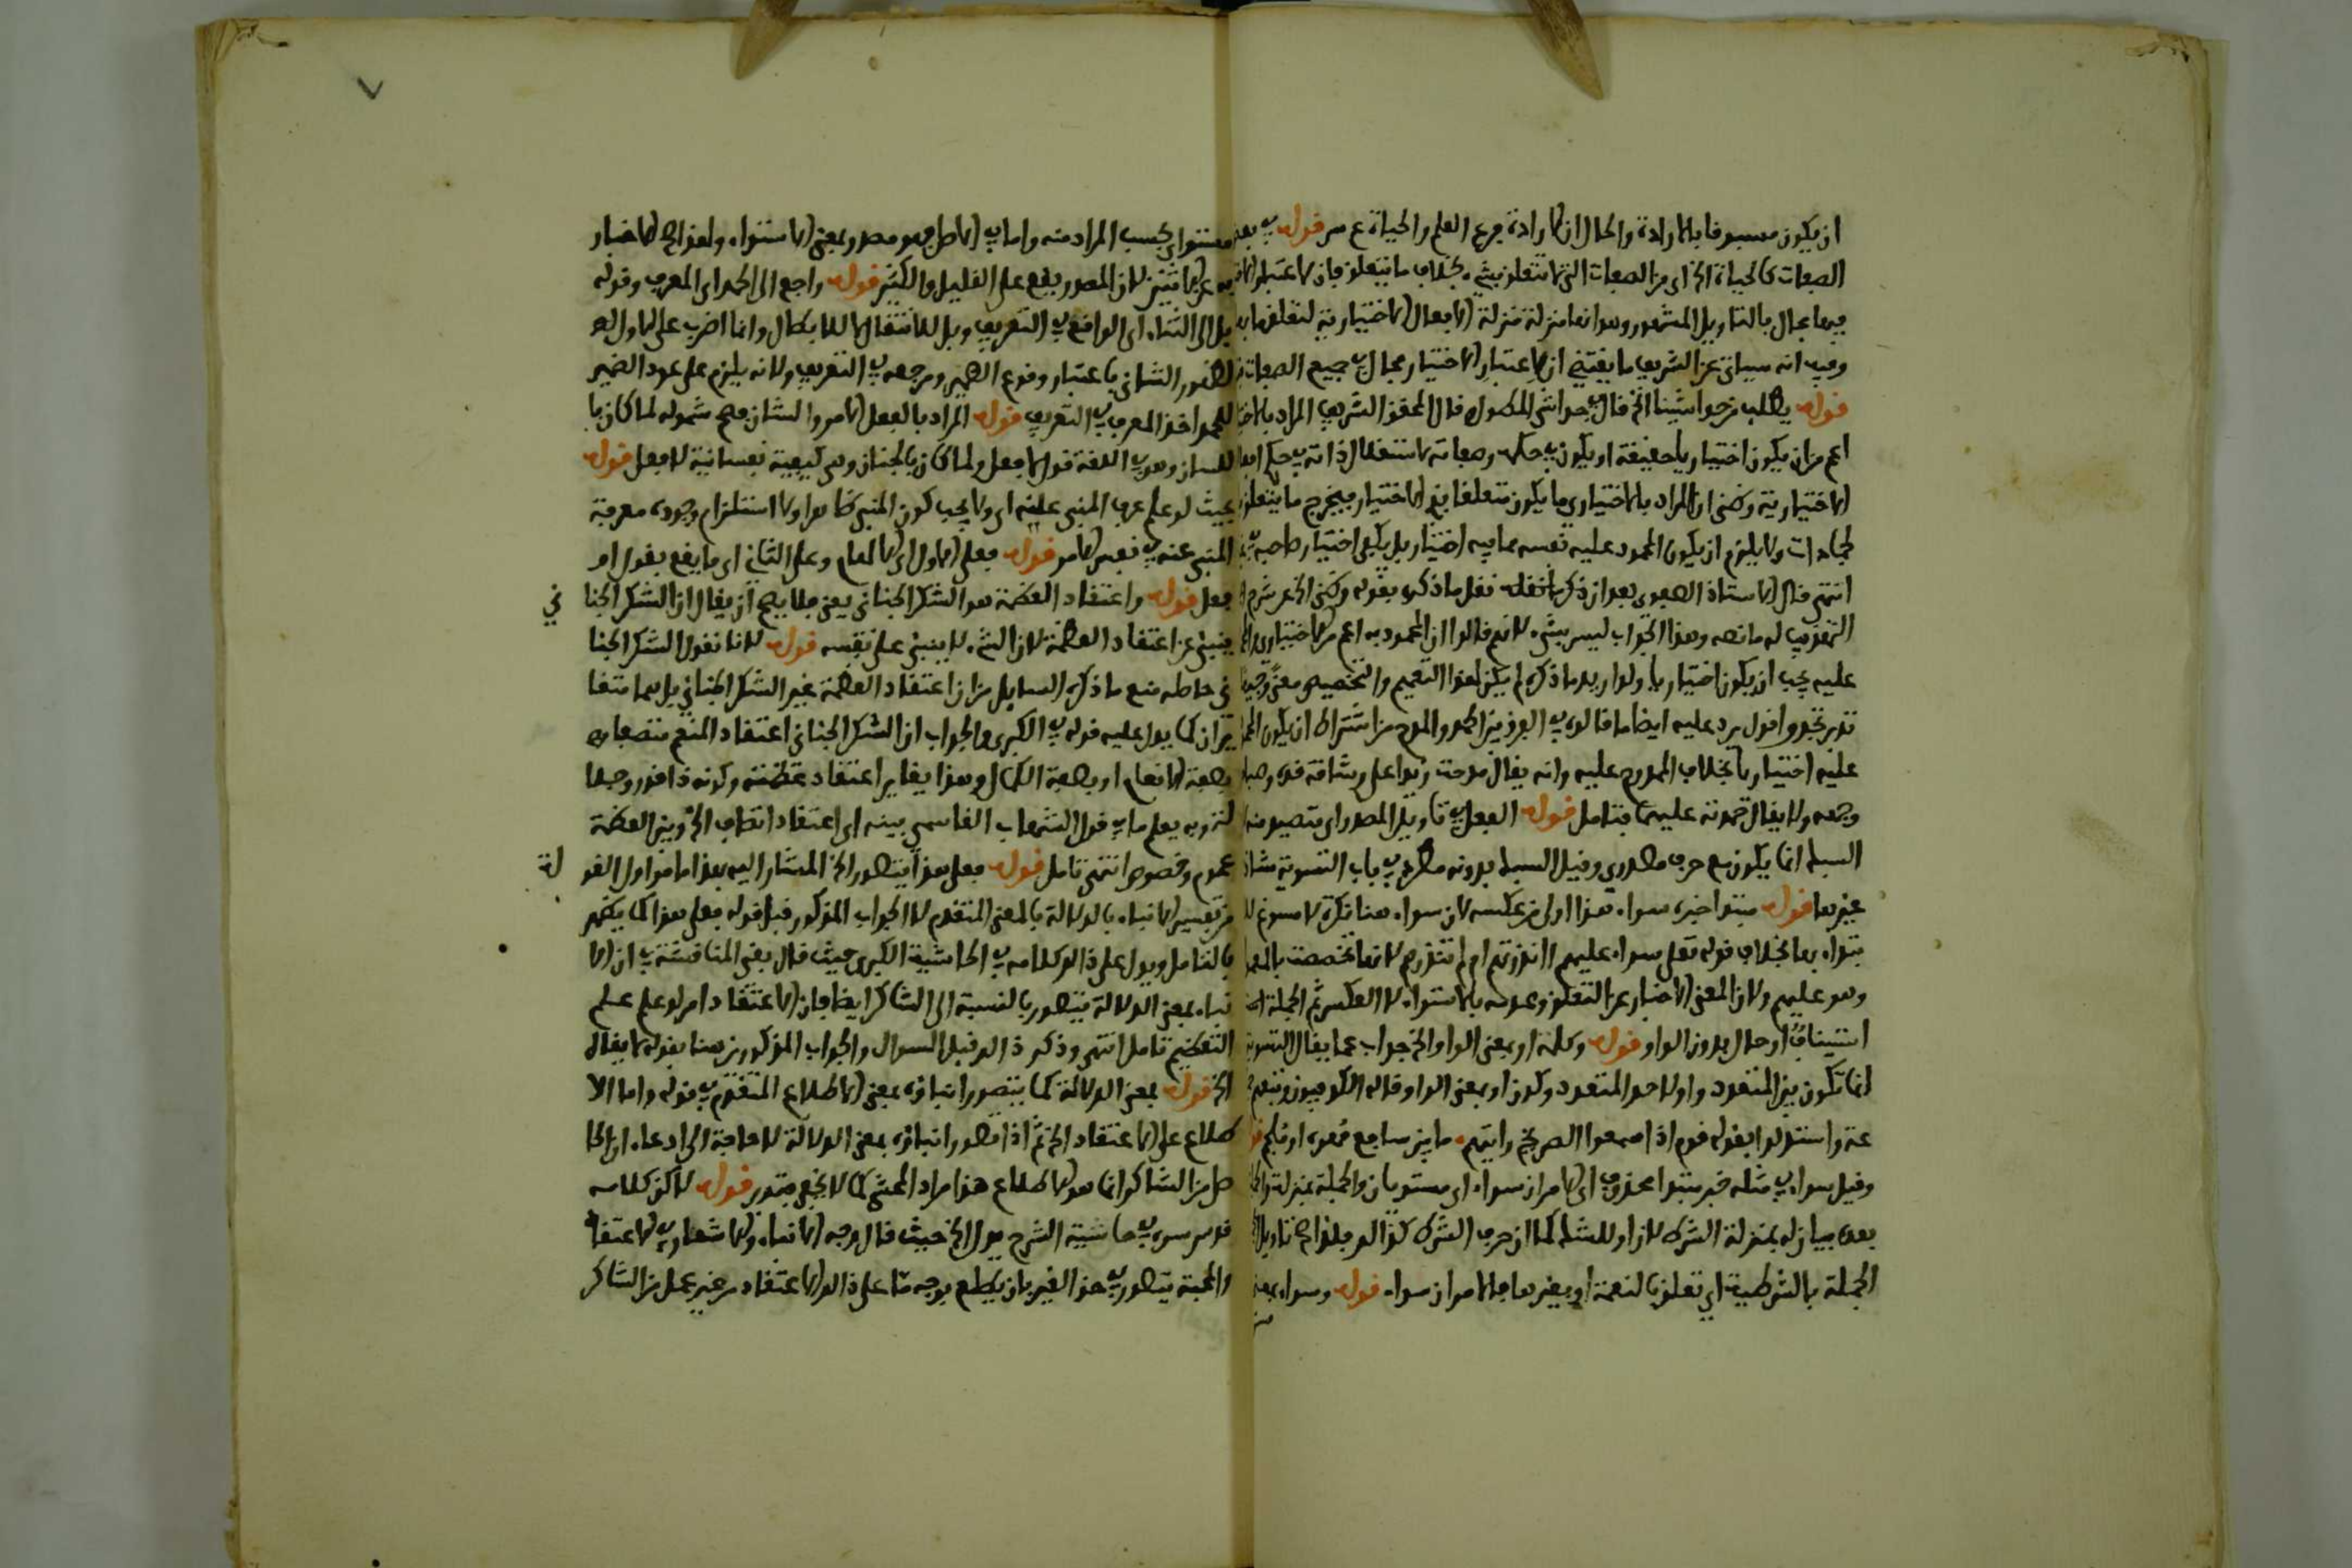 ان يكون مسبوقا بالارادة والحال ان الارادة فرع العلم والحياة ع س قوله في بعض
الصفات كالحياة الخ اى من الصفات التى لا تتعلق بشىء بخلاف ما يتعلق فان لاعتبار
فيها مجال بالتاويل المشهور وهو انها منزلة منزلة الافعال الاختيارية لتعلقها به
وفيه انه سياتى عن الشريف ما يقتضى ان لاعتبار الاختيار مجال في جميع الصفات
قوله يطلب من حواشينا الخ قال في حواشى المطول قال المحقق الشريف المراد بالاختيارى
اعم من ان يكون اختياريا حقيقة او يكون في حكمه وصفاته لاستقلال ذاته في حكم افعاله
الاختيارية وكنى ان المراد بالاختيارى ما يكون متعلقا بذى الاختيار فيخرج ما يتعلق
بالجمادات ولا يلزم ان يكون المحمود عليه نفسه مما فيه اختيار بل يكفى اختيار صاحبه
انتهى قال الاستاذ الصفوى بعد ان ذكر نقل ما ذكره بقوله وكنى الخ عن شرح
التهذيب له ما نصه وهذا الجواب ليس بشىء لانهم قالوا ان المحمود به اعم من الاختيارى
عليه يجب ان يكون اختياريا ولو اريد ما ذكر لم يكن لهذا التعميم والتخصيص معنى وجيها
تدبر تجد واقول يرد عليه ايضا ما قالوه في الفرق بين الحمد والمدح من اشتراط ان يكون المحمود
عليه اختياريا بخلاف الممدوح عليه وانه يقال مدحت زيدا على رشاقة قده وصباحة
وجهه ولا يقال حمدته عليهما فتامل قوله الفعل في تاويل المصدر اى تصييره منه
السبك انما يكون مع حرف مصدرى وقيل السبك بدونه مطرد في باب التسوية شاذ في
غيرها قوله مبتدا خبره سواء هذا اولى من عكسه لان سواء هنا نكرة لا مسوغ للا
بتداء بها بخلاف قوله تعلى سواء عليهم اانذرتهم ام لم تنذرهم لانها تخصصت بالمعمول
وهو عليهم ولان المعنى الاخبار عن التعلق وعدمه بالاستواء لا العكس ثم الجملة اما
استيناف او حال بدون الواو قوله وكلمة او بمعنى الواو الخ جواب عما يقال التسوية
انما تكون بين المتعدد واو لاحد المتعدد وكون او بمعنى الواو قاله الكوفيون وتبعهم جما
عة واستدلوا بقوله قوم اذا سمعوا الصريخ رايتهم ما بين ساجع مهره او ملجم
وقيل سواء في مثله خبر مبتدا محذوف اى الامران سواء اى مستويان والجملة بمنزلة الجزاء
بعدى بيانه له بمنزلة الشرط لان او للشك كما ان حرف الشرط كذالك فلذا صح تاويل
الجملة بالشرطية اى تعلق بالنعمة او بغيرها فالامران سواء قوله وسواء بمعنى
مستواى بحسب المراد منه واما في الاصل فهو مصدر بمعنى الاستواء ولهذا صح الاخبار
به عن الاثنين لان المصدر يقع على القليل والكثير قوله راجع الى الحمد اى المعرف وقوله
بل الى الثناء اى الواقع في التعريف وبل للانتقال لا للابطال وانما اضرب على الاول لعد
لظهور الثانى باعتبار وقوع الضمير ومرجعه في التعريف ولانه يلزم على عود الضمير
للحمد اخذ المعرف في التعريف قوله المراد بالفعل الامر والشان فصح شموله لما كان با
للسان وهو في اللغة قول لا فعل ولما كان بالجنان وهى كيفية نفسانية لا فعل قوله
بحيث لو علم عرف المنبى عنه اى ولا يجب كون المنبى ظاهرا ولا استلزام وجوده معرفة
المنبى عنه في نفس الامر قوله فعلى الاول اى الالهام وعلى الثانى اى ما يقع بقول او
فعل قوله واعتقاد العظمة هو الشكر الجنانى يعنى فلا يصح ان يقال ان الشكر الجنا نى
ينبئ عن اعتقاد العظمة لان الشىء لا ينبئ على نفسه قوله لانا نقول الشكر الجنا
نى حاصله منع ما ذكره السايل من ان اعتقاد العظمة غير الشكر الجنانى بل هما متغا
يران كما يدل عليه قوله في الكبرى والجواب ان الشكر الجنانى اعتقاد المنعم متصفا
بصفة الانعام او بصفة الكمال وهذا يغاير اعتقاد عظمته وكونه ذا قدر وجلا
لة وبه يعلم ما في قول الشهاب الفاسى بينه اى اعتقاد اتصاف الخ وبين العظمة
عموم وخصوص انتهى تامل قوله فعلى هذا يتصور الخ المشار اليه بهذا ما مر اول القو لة
من تفسير الانباء بالدلالة بالمعنى المتقدم لا الجواب المذكور قبل قوله فعلى هذا كما يظهر
بالتامل ويدل على ذالك كلامه في الحاشية الكبرى حيث قال بقى المناقشة في ان الا
نباء بمعنى الدلالة يتصور بالنسبة الى الشاكر ايضا فان الاعتقاد امر لو علم علم
التعظيم تامل انتهى وذكر ذالك قبل السوال والجواب المذكورين هنا بقوله لا يقال
الخ قوله بمعنى الدلالة كما يتصور انباؤه بمعنى الاطلاع المتقدم في قوله واما الا
طلاع على الاعتقاد الخ ثم اذا تصور انباؤه بمعنى الدلالة لا حاجة الى ادعاء ان الحا
صل من الشاكر انما هو الاطلاع هذا مراد المحشى كما لا يخفى فتدبر قوله لاكن كلامه
قدس سره في حاشية الشرح يدل الخ حيث قال وجه الانباء والاشعار في الاعتقاد
والمحبة يتصور في حق الغير بان يطلع بوجه ما على ذالك الاعتقاد من غير عمل من الشاكر